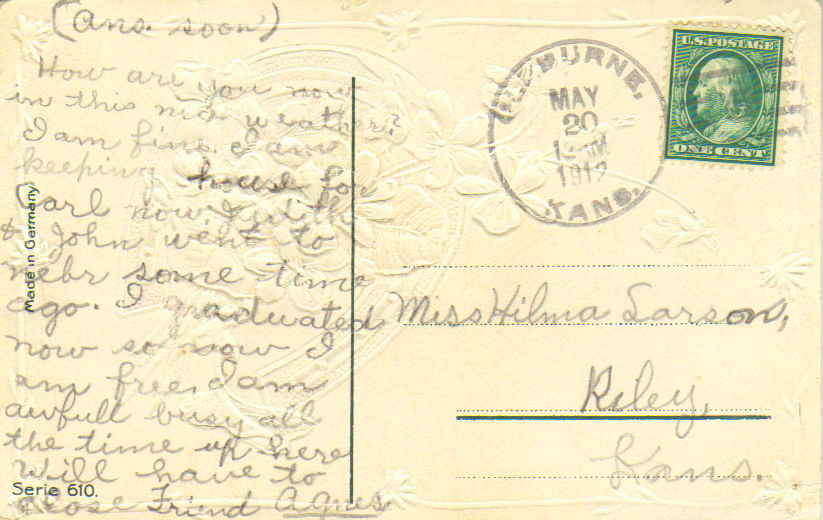 (Ans. soon)
How are you now
in this nice weather?
I am fine. I am
keeping house for
Carl now. Judith
& John went to
nebr some time
ago. I graduated
now so now I
am free. I am
awfull busy all
the time up here
Will have to
close Friend Agnes
Made in Germany
Serie 610.
BURNE,
MAY
20
1912
KANS.
U.S. POSTAGE
ONE CENT
Miss Hilma Larson,
Riley,
Kans.